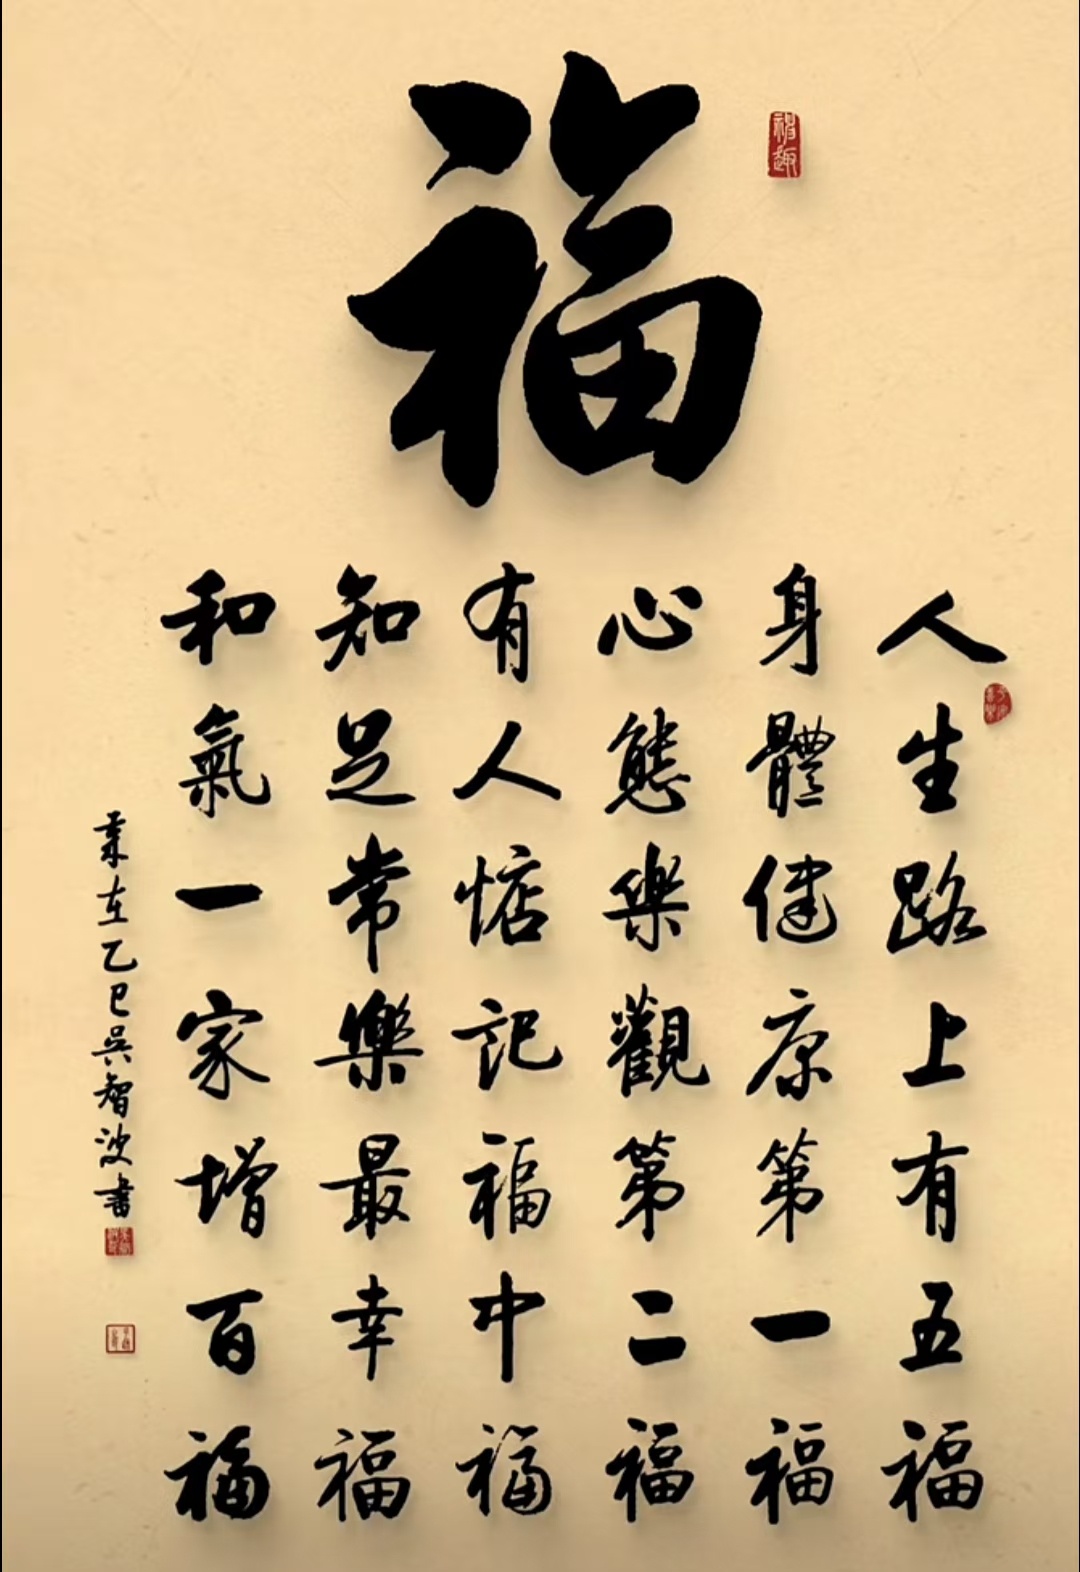 福
人生路上有五福
身體健康第一福
心態樂觀第二福
有人惦記福中福
知足常樂最幸福
和氣一家增百福
歲在乙巳吳智波書